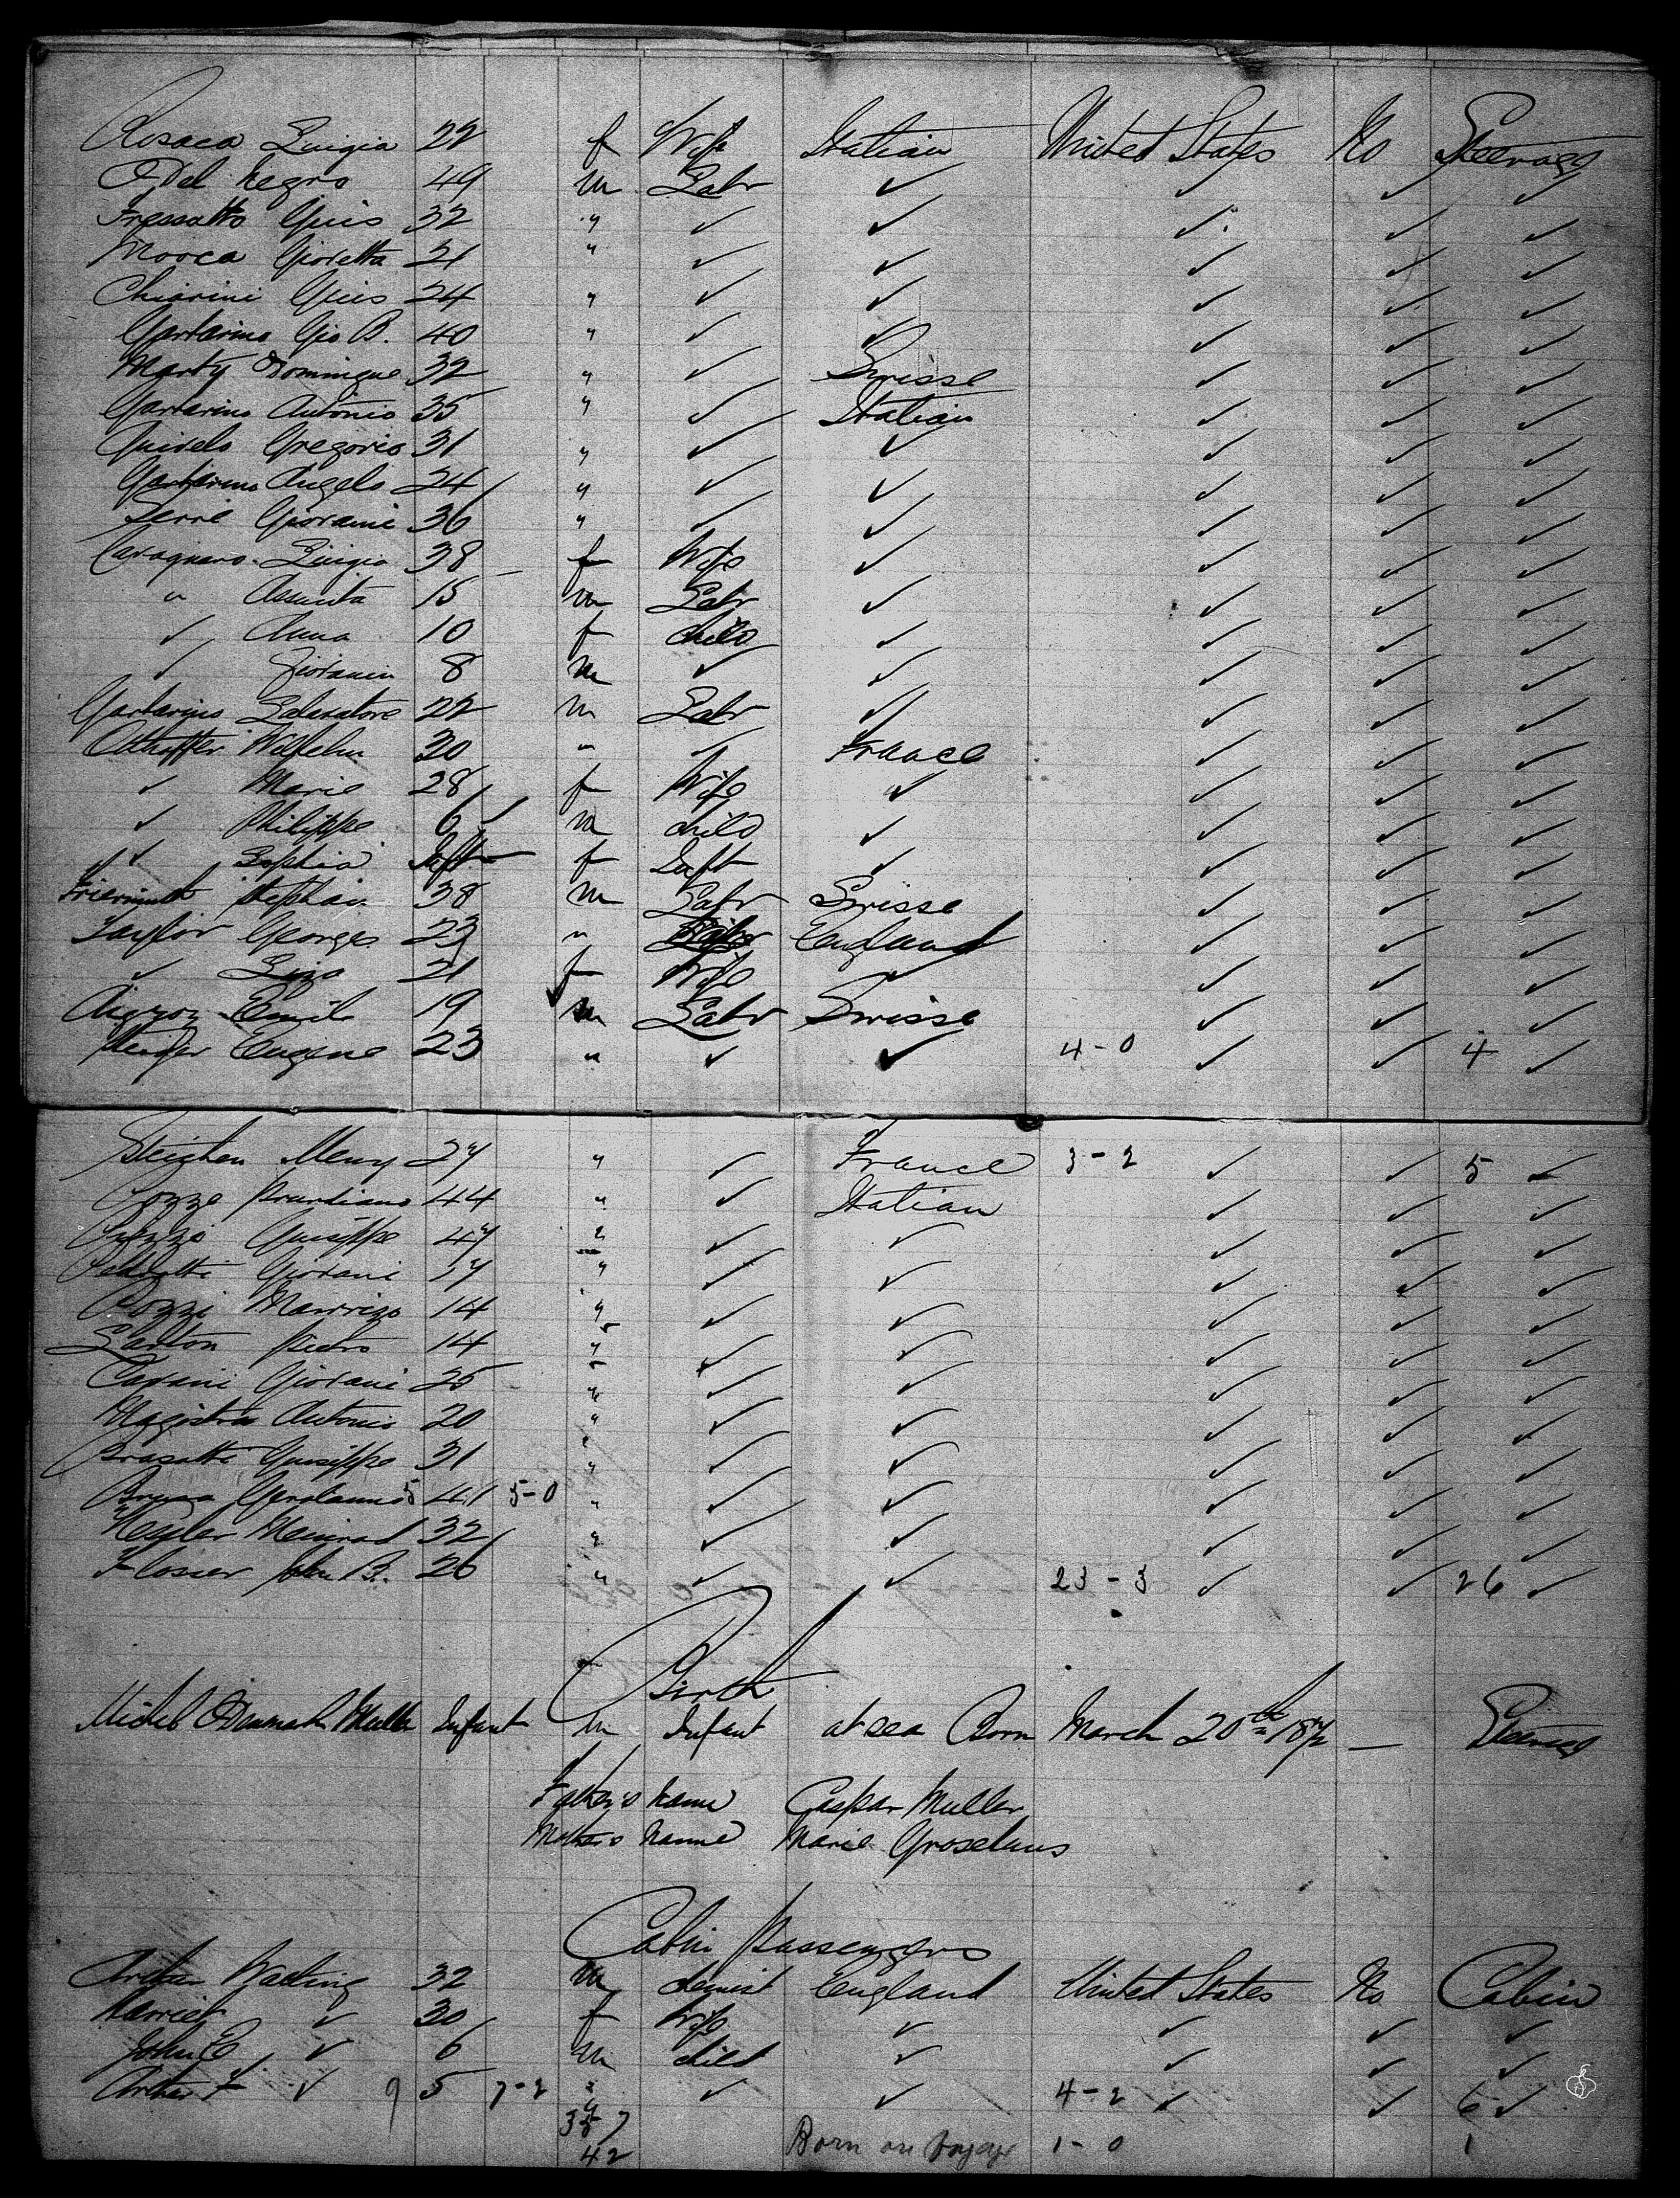 Rosaca Luigia 22 f Wife Italian United States No Steerage
O Del Negro 49 m Labr ✓ ✓ ✓ ✓
Fressatto Guis 32 " ✓ ✓ ✓ ✓ ✓
Mooca Gioretta 21 " ✓ ✓ ✓ ✓ ✓
Chiarini Guis 24 " ✓ ✓ ✓ ✓ ✓
Garbarino Gio B. 40 " ✓ ✓ ✓ ✓ ✓
Marty Dominique 32 " ✓ Swisse ✓ ✓ ✓
Garbarino Antonio 35 " ✓ Italian ✓ ✓ ✓
Gregorio 31 " ✓ ✓ ✓ ✓ ✓
Garbarino Angelo 24 " ✓ ✓ ✓ ✓ ✓
Serre Giovanni 36 " ✓ ✓ ✓ ✓ ✓
Cavagnaro Luigia 38 f Wife ✓ ✓ ✓ ✓
" Assunta 15 m Labr ✓ ✓ ✓ ✓
✓ Anna 10 f child ✓ ✓ ✓ ✓
✓ Giovanni 8 m ✓ ✓ ✓ ✓ ✓
Garbarino Salavatore 22 m Labr ✓ ✓ ✓ ✓
Wilhelm 30 " ✓ France ✓ ✓ ✓
✓ Marie 28 f Wife ✓ ✓ ✓ ✓
✓ Philippe 6 m child ✓ ✓ ✓ ✓
✓ Sophia Inft f Inft ✓ ✓ ✓ ✓
Stephan 38 m Labr Swisse ✓ ✓ ✓
Taylor George 23 " England ✓ ✓ ✓
✓ Liza 21 f Wife ✓ ✓ ✓ ✓
Emile 19 m Labr Swisse ✓ ✓ ✓
Eugene 23 " ✓ ✓ 4-0 ✓ ✓ 4 ✓
27 " ✓ France 3-2 ✓ ✓ 5 ✓
Pozze 44 " ✓ Italian ✓ ✓ ✓
Guiseppe 47 " ✓ ✓ ✓ ✓ ✓
Giovani 17 " ✓ ✓ ✓ ✓ ✓
Pozzi Maurizo 14 " ✓ ✓ ✓ ✓ ✓
Santon Pietro 14 " ✓ ✓ ✓ ✓ ✓
Cavani Giovani 25 " ✓ ✓ ✓ ✓ ✓
Magistra Antonio 20 " ✓ ✓ ✓ ✓ ✓
Brasatti Guiseppe 31 " ✓ ✓ ✓ ✓ ✓
Bruna Gerolanmo 5 41 5-0 " ✓ ✓ ✓ ✓ ✓
Meinrad 32 " ✓ ✓ ✓ ✓ ✓
Flosser John B. 26 " ✓ ✓ 23-3 ✓ ✓ 26 ✓
Birth
Michel Denmark Muller Infant m Infant at sea Born March 20th 1872 — Steerage
Father's Name Caspar Muller
Mother's Name Marie Groselaus
Cabin Passengers
Arthur Watling 32 m chemist England United States No Cabin
Harriet ✓ 30 f Wife ✓ ✓ ✓ ✓
John E ✓ 6 m child ✓ ✓ ✓ ✓
Arthur F ✓ 9 5 7-2 " ✓ ✓ 4-2 ✓ ✓ 6 ✓
7
42 Born on Voyage 1-0 1